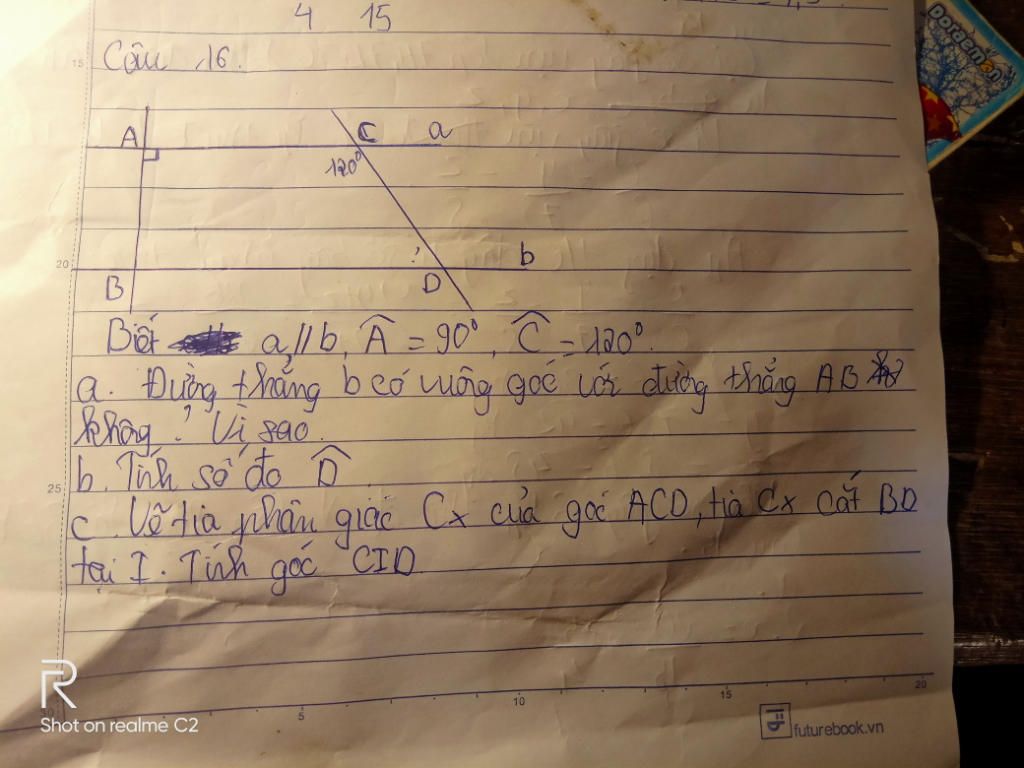 4 15
Câu 16.
15
A
C a
120°
20
? b
B D
Biết a // b, Â = 90°, Ĉ = 120°.
a. Đường thẳng b có vuông góc với đường thẳng AB
không? Vì sao.
b. Tính số đo D̂
25
c. Vẽ tia phân giác Cx của góc ACD, tia Cx cắt BD
tại I. Tính góc CID
R
Shot on realme C2
5 10 15 20
futurebook.vn
Doraemon